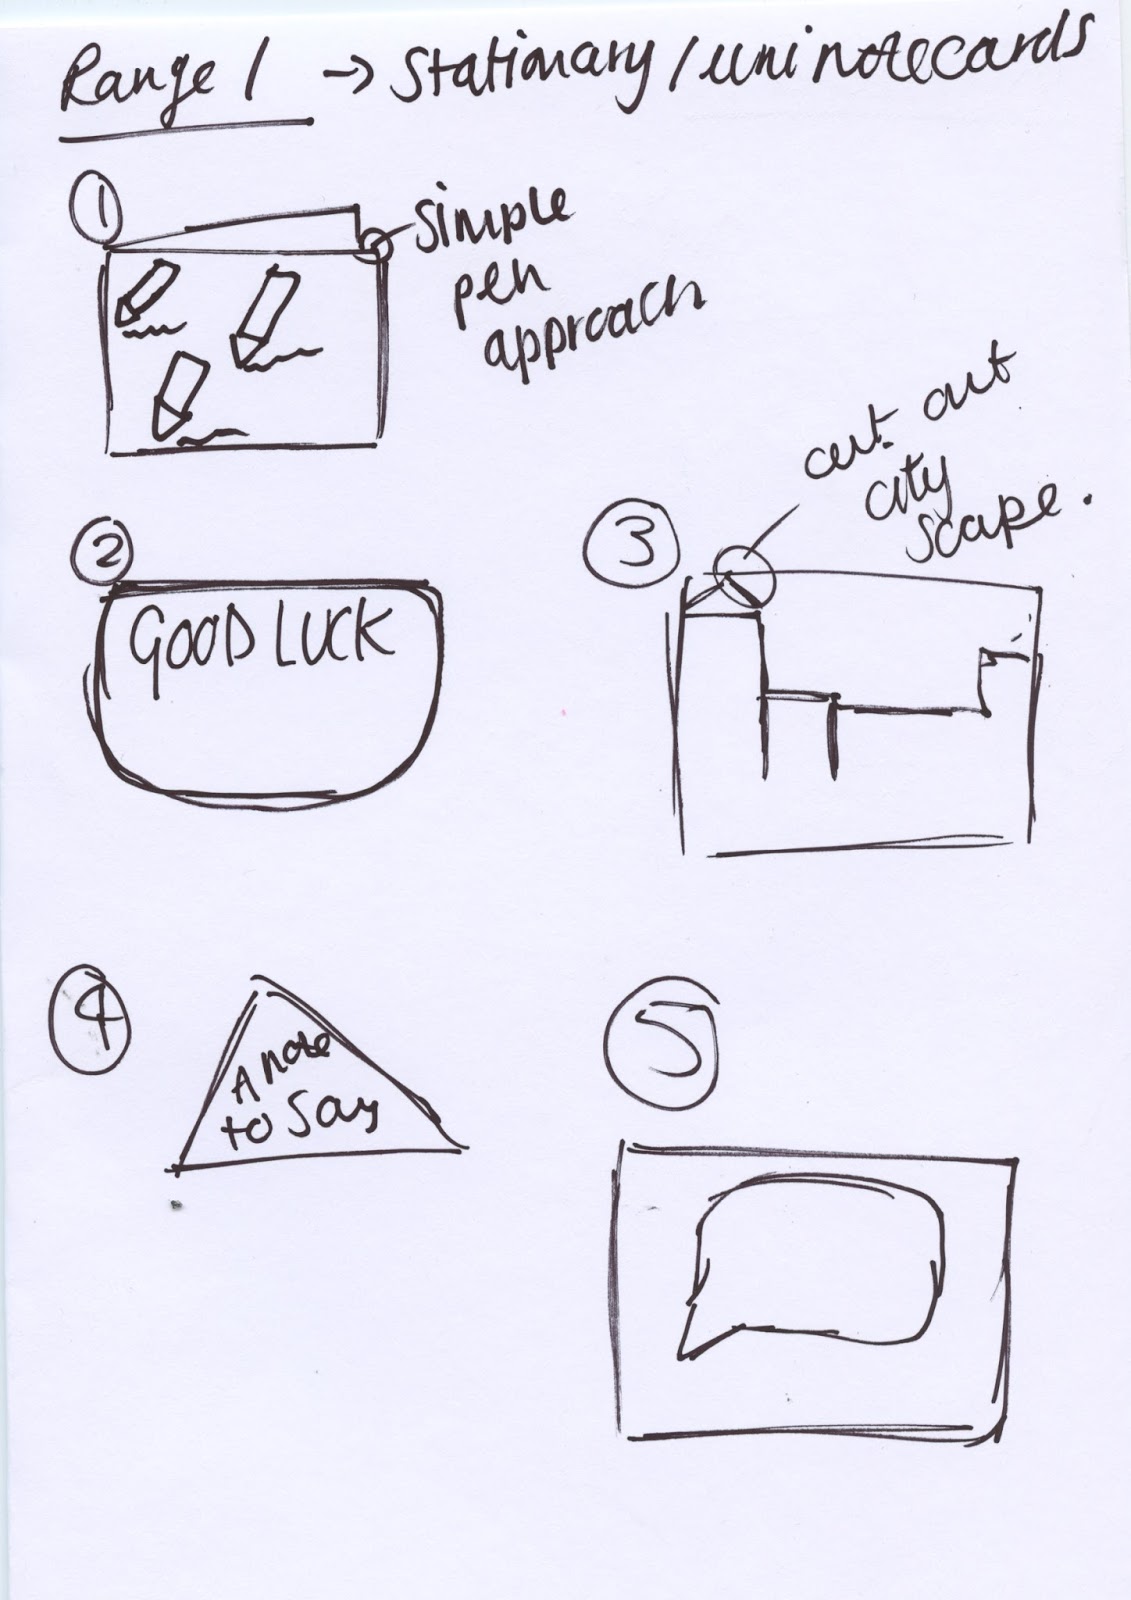 Range 1 → Stationary / uni notecards
1
simple
pen
approach
2
GOOD LUCK
3
cut out
city
scape.
4
A note
to say
5